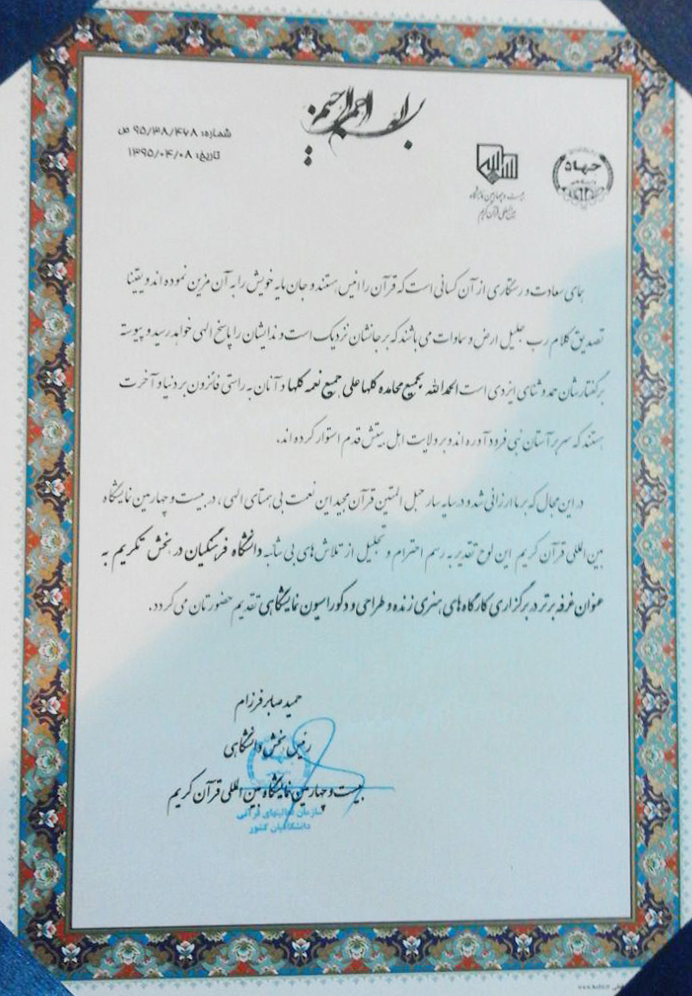 بسم الله الرحمن الرحیم
شماره: ۹۵/۳۸/۴۶۸ ص
تاریخ: ۱۳۹۵/۰۴/۰۸
جهاد
بیست و چهارمین نمایشگاه
بین‌المللی قرآن کریم
جمای سعادت و رستگاری از آن کسانی است که قرآن را انیس هستند و جان مایه خویش را به آن مزین نموده اند و یقینا
تصدیق کلام رب جلیل ارض و سماوات می باشند که بر جانشان نزدیک است و ندایشان را پاسخ الهی خواهد رسید و پیوسته
بر گفتارشان حمد و ثنای ایزدی است الحمدالله بجمیع محامده کلها علی جمیع نعمه کلها و آنان به راستی فائزون بر دنیا و آخرت
هستند که سر بر آستان نبی فرود آورده اند و بر ولایت اهل بیتش قدم استوار کرده اند.
در این مجال که بر ما ارزانی شد و در سایه سار حبل المتین قرآن مجید این نعمت بی همتای الهی، در بیست و چهارمین نمایشگاه
بین المللی قرآن کریم این لوح تقدیر به رسم احترام و تجلیل از تلاش های بی شائبه دانشگاه فرهنگیان در بخش تکریم به
عنوان غرفه برتر در برگزاری کارگاه های هنری زنده و طراحی و دکوراسیون نمایشگاهی تقدیم حضورتان می گردد.
حمید صابر فرزام
رئیس بخش دانشگاهی
بیست و چهارمین نمایشگاه بین المللی قرآن کریم
سازمان فعالیتهای قرآنی
دانشگاهیان کشور